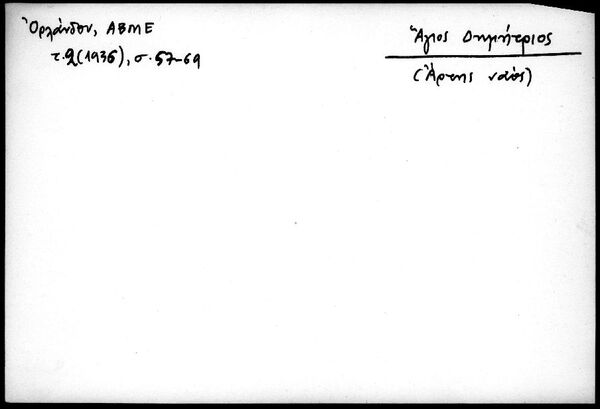 Ὀρλάνδου, ΑΒΜΕ
τ.2(1936), σ.57-69
Ἅγιος Δημήτριος
(Ἄρτης ναός)